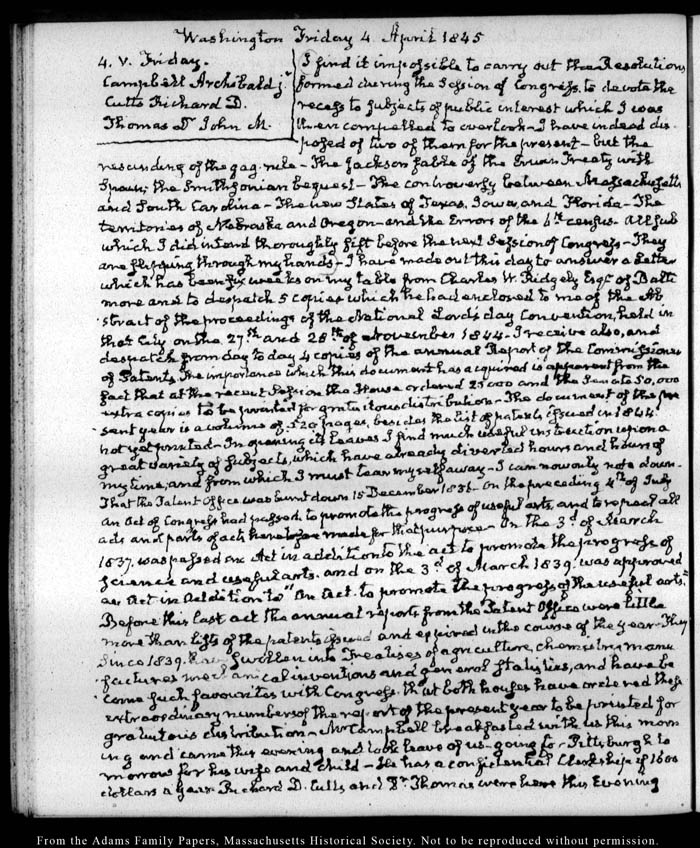 Washington Friday 4. April 1845
4. V. Friday.
Campbell Archibald jr
Cutts Richard D.
Thomas Dr John M.
I find it impossible to carry out the Resolutions
formed during the Session of Congress, to devote the
recess to subjects of public interest which I was
then compelled to overlook — I have indeed dis-
posed of two of them for the present — but the
rescinding of the gag-rule — The Jackson fable of the Erving Treaty with
Spain; the Smithsonian bequest — The controversy between Massachusetts
and South Carolina — The new States of Texas, Iowa, and Florida — The
territories of Nebraska and Oregon — and the Errors of the 6th census. All
which I did intend thoroughly sift before the next Session of Congress — They
are slipping through my hands — I have made out this day to answer a Letter
which has been six weeks on my table from Charles W. Ridgely Esqr of Balti
more and to despatch 5 copies which he had enclosed to me of the Ab
stract of the proceedings of the National Lord's day Convention, held in
that City on the 27th and 28th of November 1844. I receive also, and
despatch from day to day 4 copies of the annual Report of the Commissioner
of Patents. The importance which this document has acquired is apparent from the
fact that at the recent Session the House ordered 25000 and the Senate 50,000
extra copies to be printed for gratuitous distribution — The document of the pre
sent year is a volume of 520 pages, besides the list of patents issued in 1844.
not yet printed — In opening its leaves I find much useful instruction upon a
great variety of subjects, which have already diverted hours and hours of
my time, and from which I must tear myself away — I can now only note down.
That the Patent Office was burnt down 15 December 1836. On the preceding 4th of July
an Act of Congress had passed, to promote the progress of useful arts, and to repeal all
acts and parts of acts heretofore made for that purpose. On the 3d of March
1837. was passed an Act in addition to the act to promote the progress of
science and useful arts. and on the 3d of March 1839. was approved
an Act in addition to "An Act to promote the progress of the useful arts."
Before this last act the annual reports from the Patent Office were little
more than lists of the patents issued and expired in the course of the year — They
since 1839. have swollen into Treatises of agriculture, chemistry, manu
factures mechanical inventions and general statistics, and have be
come such favourites with Congress that both houses have ordered these
extraordinary numbers of the report of the present year to be printed for
gratuitous distribution — Mr Campbell breakfasted with us this morn
ing and came this evening and took leave of us — going for Pittsburgh to
morrow for his wife and child — He has a confidential Clerkship of 1600
dollars a year. Richard D. Cutts and Dr Thomas were here this Evening
From the Adams Family Papers, Massachusetts Historical Society. Not to be reproduced without permission.